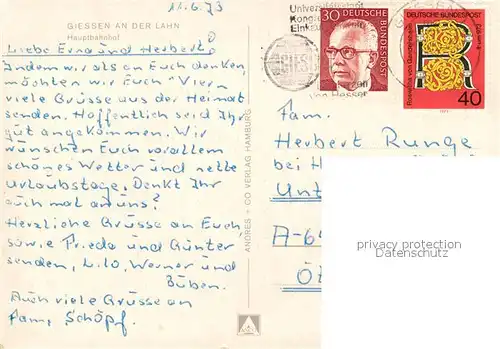 11.6.73
GIESSEN AN DER LAHN
Hauptbahnhof
Liebe Erna und Herbert!
Indem wir als an Euch denken,
möchten wir Euch Viern
viele Grüsse aus der Heimat
senden. Hoffentlich seid Ihr
gut angekommen. Wir
wünschten Euch vorallem
schönes Wetter und nette
Urlaubstage. Denkt Ihr
auch mal an uns?
Herzliche Grüsse an Euch
sowie Frieda und Günter
senden, Lilo, Werner und
Buben.
Auch viele Grüsse an
Fam. Schöpf.
ANDRES + CO VERLAG HAMBURG
Universitätsstadt
30
DEUTSCHE BUNDESPOST
DEUTSCHE BUNDESPOST
Roswitha von Gandersheim
40
Fam.
Herbert Runge
bei H
Unt
A-64
Öt
privacy protection
Datenschutz